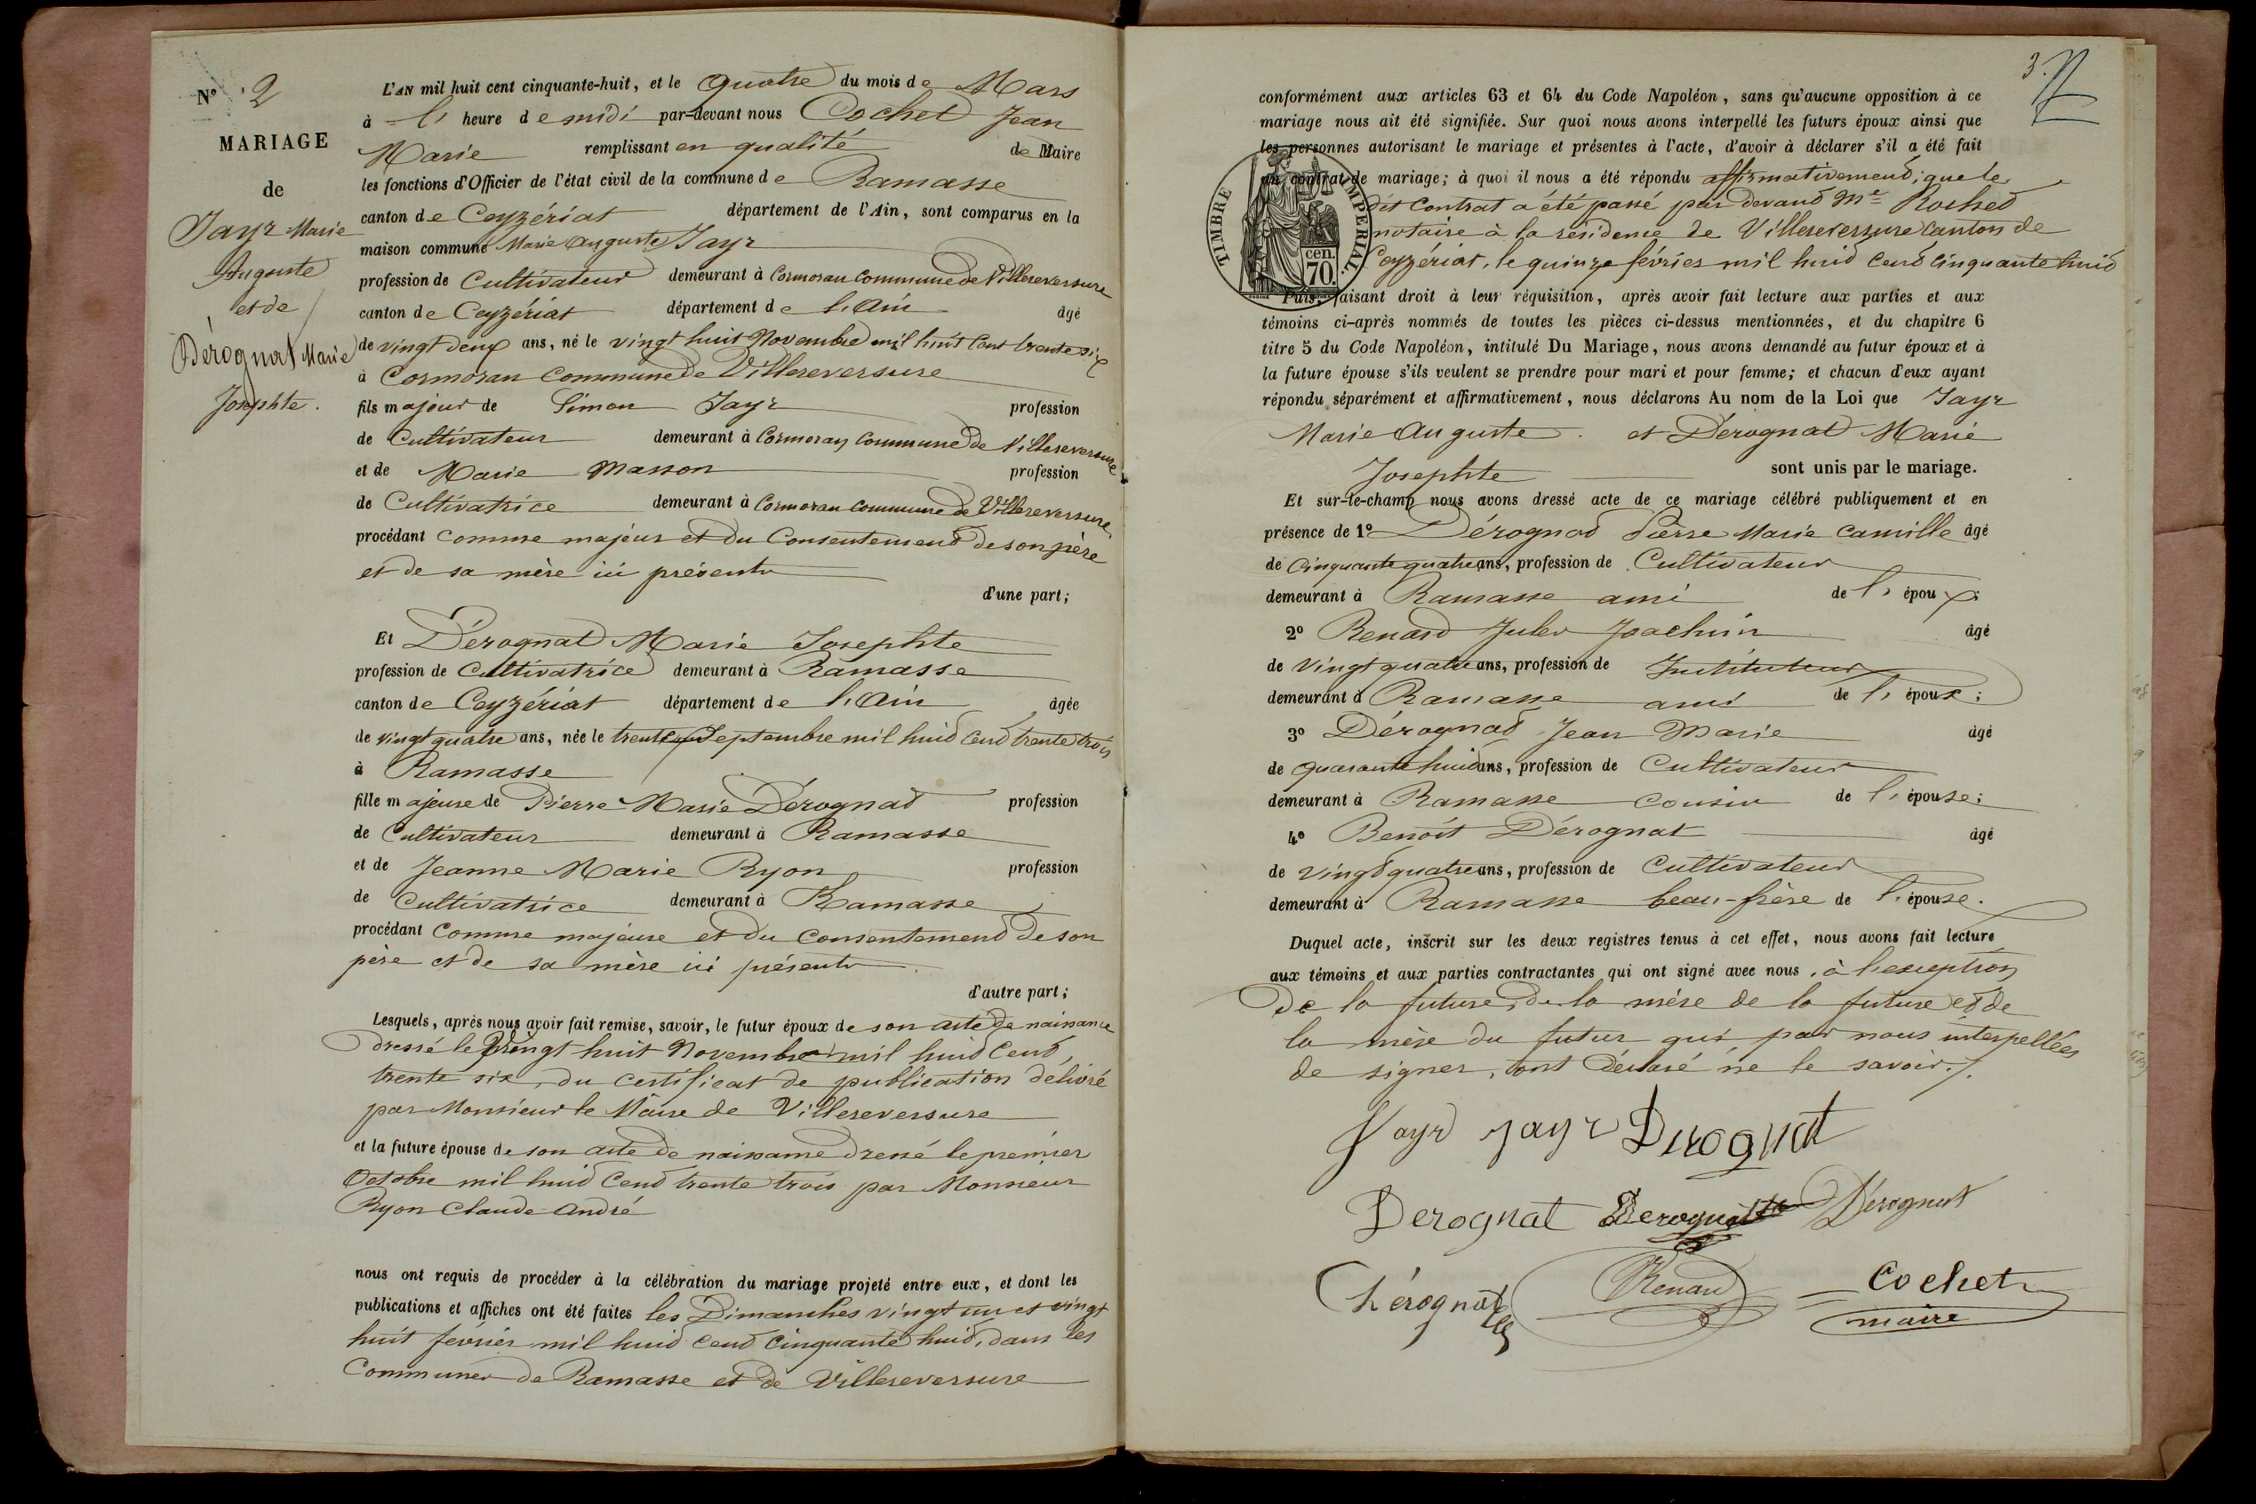 N° 2
MARIAGE
de
Jayr Marie
Auguste
et de
Dérognat Marie
Josephte.
L'AN mil huit cent cinquante-huit, et le quatre du mois de Mars
à l' heure de midi par-devant nous Cochet Jean
Marie remplissant en qualité de Maire
les fonctions d'Officier de l'état civil de la commune de Ramasse
canton de Ceyzériat département de l'Ain, sont comparus en la
maison commune Marie Auguste Jayr
profession de Cultivateur demeurant à Cormoran commune de Villereversure
canton de Ceyzériat département de l'Ain âgé
de vingt deux ans, né le vingt huit Novembre mil huit cent trente six
à Cormoran commune de Villereversure
fils majeur de Simon Jayr profession
de Cultivateur demeurant à Cormoran commune de Villereversure
et de Marie Masson profession
de Cultivatrice demeurant à Cormoran commune de Villereversure
procédant comme majeur et du Consentement de son père
et de sa mère ici présents
d'une part;
Et Dérognat Marie Josephte
profession de Cultivatrice demeurant à Ramasse
canton de Ceyzériat département de l'Ain âgée
de vingt quatre ans, née le trente Septembre mil huit cent trente trois
à Ramasse
fille majeure de Pierre Marie Dérognat profession
de Cultivateur demeurant à Ramasse
et de Jeanne Marie Ryon profession
de Cultivatrice demeurant à Ramasse
procédant comme majeure et du consentement de son
père et de sa mère ici présents.
d'autre part;
Lesquels, après nous avoir fait remise, savoir, le futur époux de son acte de naissance
dressé le vingt huit Novembre mil huit cent
trente six, du certificat de publication délivré
par Monsieur le Maire de Villereversure
et la future épouse de son acte de naissance dressé le premier
Octobre mil huit cent trente trois par Monsieur
Ryon Claude André
nous ont requis de procéder à la célébration du mariage projeté entre eux, et dont les
publications et affiches ont été faites les Dimanches vingt un et vingt
huit février mil huit cent cinquante huit, dans les
Communes de Ramasse et de Villereversure
3.
conformément aux articles 63 et 64 du Code Napoléon, sans qu'aucune opposition à ce
mariage nous ait été signifiée. Sur quoi nous avons interpellé les futurs époux ainsi que
les personnes autorisant le mariage et présentes à l'acte, d'avoir à déclarer s'il a été fait
un contrat de mariage; à quoi il nous a été répondu affirmativement; que le
dit Contrat a été passé par devant Me Rochet
notaire à la résidence de Villereversure canton de
Ceyzériat, le quinze février mil huit cent cinquante huit
TIMBRE IMPERIAL.
70 cen.
Puis, faisant droit à leur réquisition, après avoir fait lecture aux parties et aux
témoins ci-après nommés de toutes les pièces ci-dessus mentionnées, et du chapitre 6
titre 5 du Code Napoléon, intitulé Du Mariage, nous avons demandé au futur époux et à
la future épouse s'ils veulent se prendre pour mari et pour femme; et chacun d'eux ayant
répondu séparément et affirmativement, nous déclarons Au nom de la Loi que Jayr
Marie Auguste. et Dérognat Marie
Josephte sont unis par le mariage.
Et sur-le-champ nous avons dressé acte de ce mariage célébré publiquement et en
présence de 1° Dérognat Pierre Marie Camille âgé
de Cinquante quatre ans, profession de Cultivateur
demeurant à Ramasse ami de l' époux;
2° Renard Jules Joachim âgé
de vingt quatre ans, profession de Instituteur
demeurant à Ramasse ami de l' époux;
3° Dérognat Jean Marie âgé
de quarante huit ans, profession de Cultivateur
demeurant à Ramasse cousin de l' épouse;
4° Benoît Dérognat âgé
de vingt quatre ans, profession de Cultivateur
demeurant à Ramasse beau-frère de l' épouse.
Duquel acte, inscrit sur les deux registres tenus à cet effet, nous avons fait lecture
aux témoins et aux parties contractantes qui ont signé avec nous, à l'exception
de la future, de la mère de la future et de
la mère du futur qui par nous interpellées
de signer, ont déclaré ne le savoir./.
Jayr Jayr Derognat
Derognat Derognat Dérognat
Dérognat Renard Cochet
maire